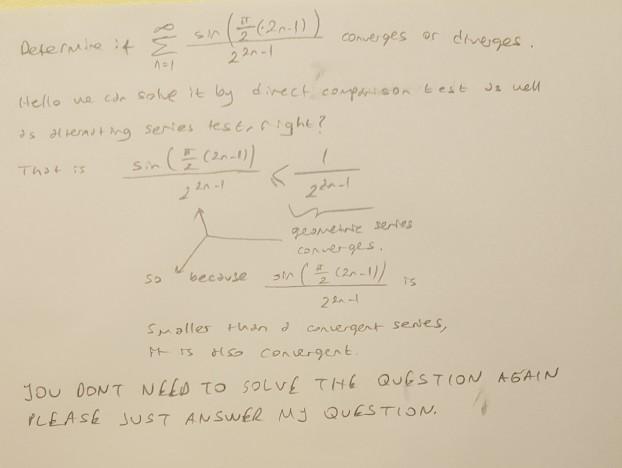 Determine if ∞ Σ n=1 sin(π/2(2n-1)) / 2^(2n-1) converges or diverges.
Hello we can solve it by direct comparison test as well
as alternating series test, right?
That is sin(π/2 (2n-1)) / 2^(2n-1) ≤ 1 / 2^(2n-1)
geometric series
converges.
so because sin(π/2 (2n-1)) / 2^(2n-1) is
smaller than a convergent series,
it is also convergent.
YOU DONT NEED TO SOLVE THE QUESTION AGAIN
PLEASE JUST ANSWER MY QUESTION.